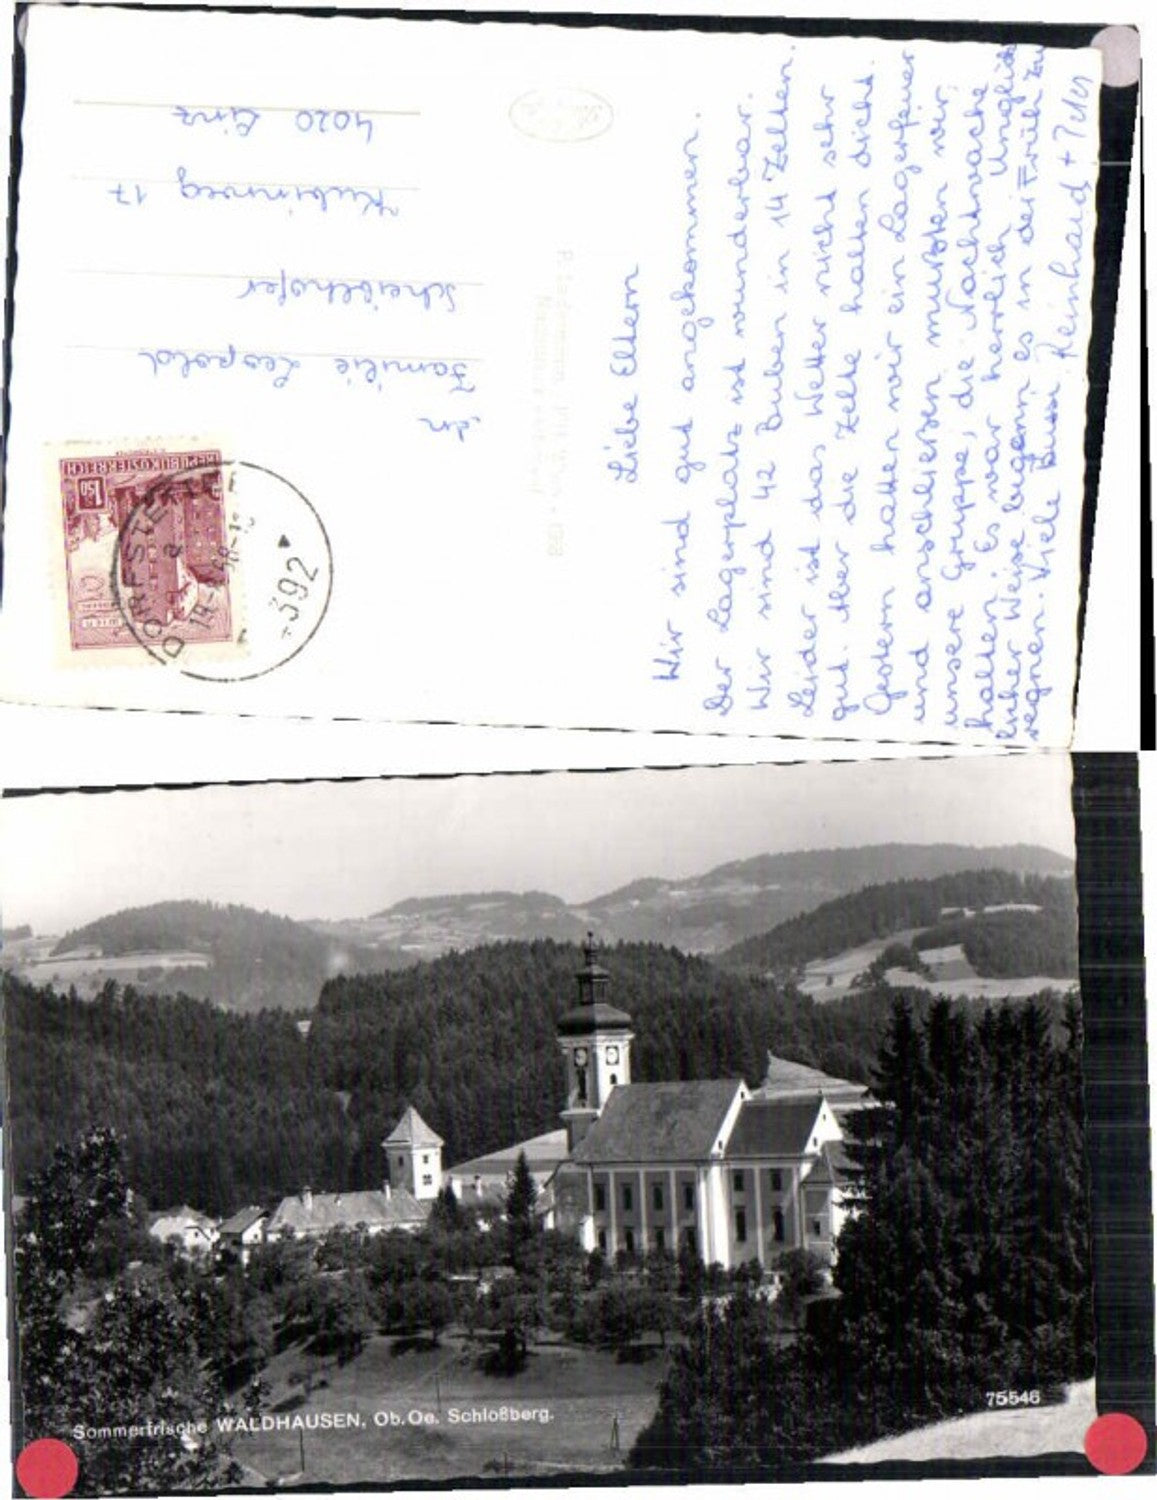 Liebe Eltern
Wir sind gut angekommen.
Der Lagerplatz ist wunderbar.
Wir sind 42 Buben in 14 Zelten.
Leider ist das Wetter nicht sehr
gut. Aber die Zelte halten dicht.
Gestern hatten wir ein Lagerfeuer
und anschließen mußten wir,
unsere Gruppe, die Nachtwache
halten. Es war herrlich. Unglück
licher Weise begann es in der Früh zu
regnen. Viele Bussi Reinhard + Peter
An
Familie Leopold
Scheiblhofer
Kubinweg 17
4020 Linz
REPUBLIK ÖSTERREICH
1.50
WIEN
DORFSTETTEN
392
Sommerfrische WALDHAUSEN, Ob.Oe. Schloßberg.
75546